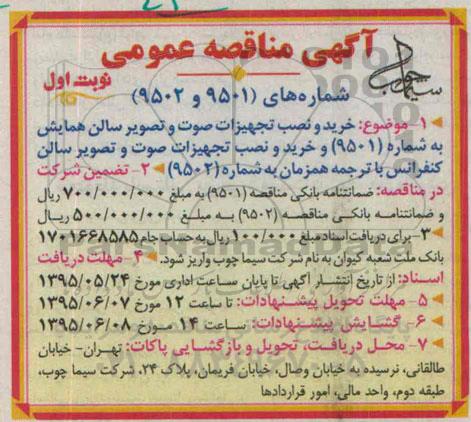 آگهی مناقصه عمومی
سیما چوب
نوبت اول
شماره‌های (۹۵۰۱ و ۹۵۰۲)
۱- موضوع: خرید و نصب تجهیزات صوت و تصویر سالن همایش
به شماره (۹۵۰۱) و خرید و نصب تجهیزات صوت و تصویر سالن
کنفرانس با ترجمه همزمان به شماره (۹۵۰۲) ۲- تضمین شرکت
در مناقصه: ضمانتنامه بانکی مناقصه (۹۵۰۱) به مبلغ ۷۰۰/۰۰۰/۰۰۰ ریال
و ضمانتنامه بانکی مناقصه (۹۵۰۲) به مبلغ ۵۰۰/۰۰۰/۰۰۰ ریال
۳- برای دریافت اسناد مبلغ ۱۰۰/۰۰۰ ریال به حساب جام ۱۷۰۱۶۶۸۵۸۵
بانک ملت شعبه کیوان به نام شرکت سیما چوب واریز شود. ۴- مهلت دریافت
اسناد: از تاریخ انتشار آگهی تا پایان ساعت اداری مورخ ۱۳۹۵/۰۵/۲۴
۵- مهلت تحویل پیشنهادات: تا ساعت ۱۲ مورخ ۱۳۹۵/۰۶/۰۷
۶- گشایش پیشنهادات: ساعت ۱۴ مورخ ۱۳۹۵/۰۶/۰۸
۷- محل دریافت، تحویل و بازگشایی پاکات: تهران- خیابان
طالقانی، نرسیده به خیابان وصال، خیابان فریمان، پلاک ۲۴، شرکت سیما چوب،
طبقه دوم، واحد مالی، امور قراردادها